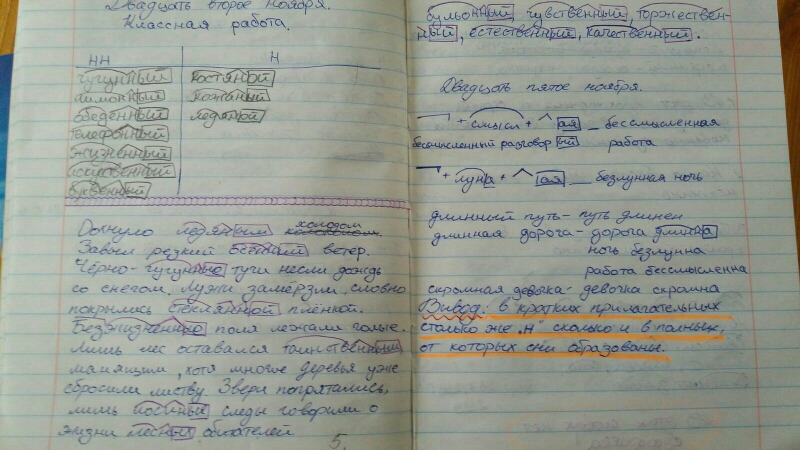 Двадцать второе ноября.
Классная работа.
НН Н
чугунный костяной
лимонный кожаный
обеденный ледяной
телефонный
жизненный
искусственный
буквенный
Дохнуло ледяным холодом
Завыл резкий осенний ветер.
Чёрно-чугунные тучи несли дождь
со снегом. Лужи замёрзли, словно
покрылись стеклянной плёнкой.
Безжизненные поля лежали голые.
Лишь лес оставался таинственным
манящим, хотя многие деревья уже
сбросили листву. Звери попрятались,
лишь следы говорили о
жизни лесных обитателей
5.
бульонный, чувственный, торжествен-
ный, естественный, качественный.
Двадцать пятое ноября.
+ смысл + ая бессмысленная
бессмысленный разговор ый работа
+ луна + ая безлунная ночь
длинный путь - путь длинен
длинная дорога - дорога длинна
ночь безлунна
работа бессмысленна
скромная девочка - девочка скромна
Вывод: в кратких прилагательных
столько же "Н" сколько и в полных,
от которых они образованы.